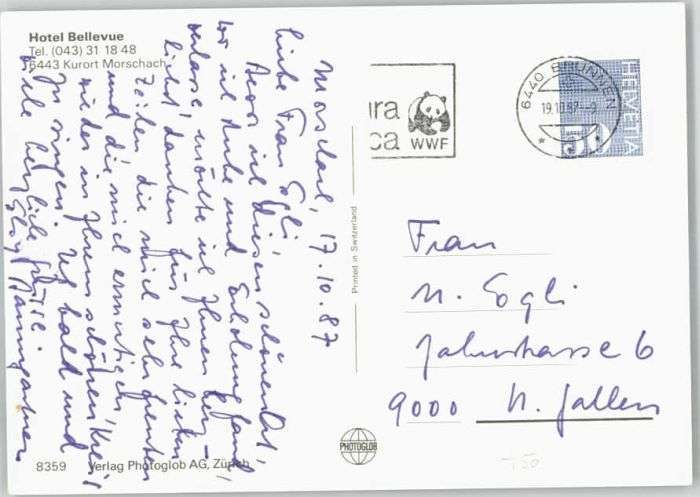 Hotel Bellevue
Tel. (043) 31 18 48
6443 Kurort Morschach
Morschach, 17.10.87
Liebe Frau Egli
Bevor ich diesen schönen Ort,
wo ich Ruhe und Erholung fand,
verlasse möchte ich Ihnen herz-
lichst danken für Ihre lieben
Zeilen die mich sehr freuten
und die mich ermutigen
wieder in Ihrem schönen Kreis
zu singen. Uf bald und
viele herzliche Grüsse.
Baumgartner
8359 Verlag Photoglob AG, Zürich
Printed in Switzerland
PHOTOGLOB
ura
ca WWF
6440 BRUNNEN
19.10.87-9
HELVETIA
50
Frau
M. Egli
Jahnstrasse 6
9000 St. Gallen